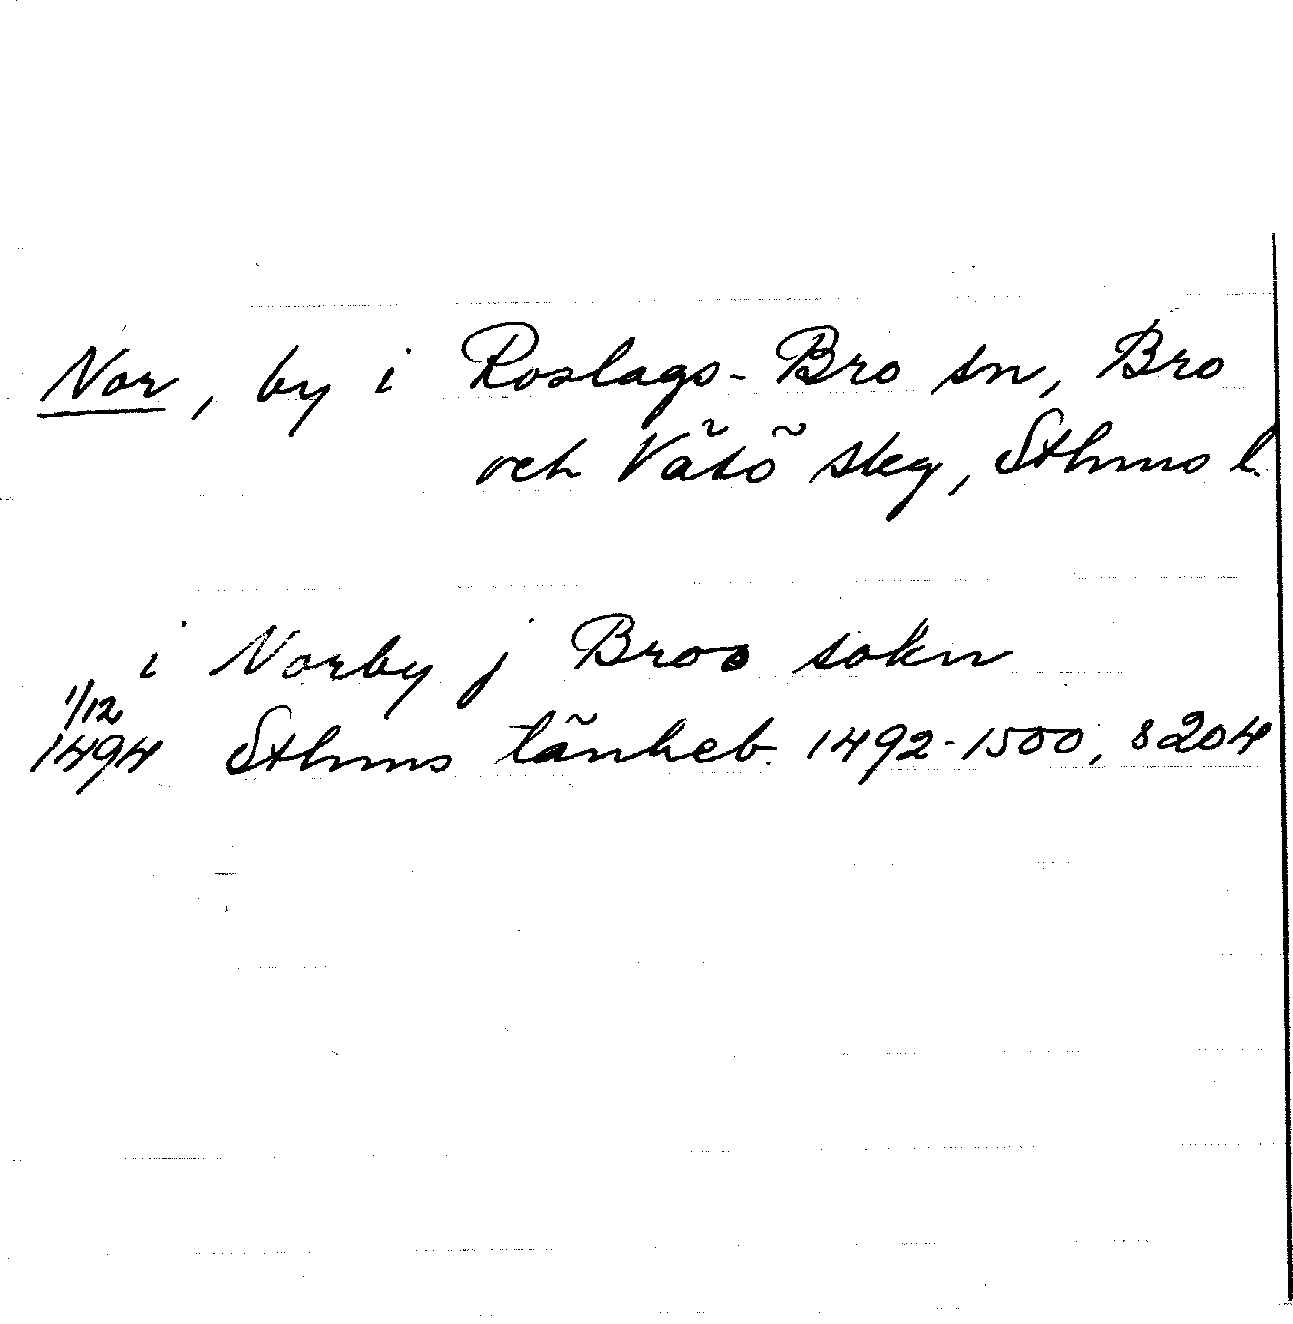 Nor, by i Roslags-Bro sn, Bro
och Vätö skg, Sthms l.
i Norby j Broo sokn
1/12
1494 Sthms tänkeb. 1492-1500, s 204